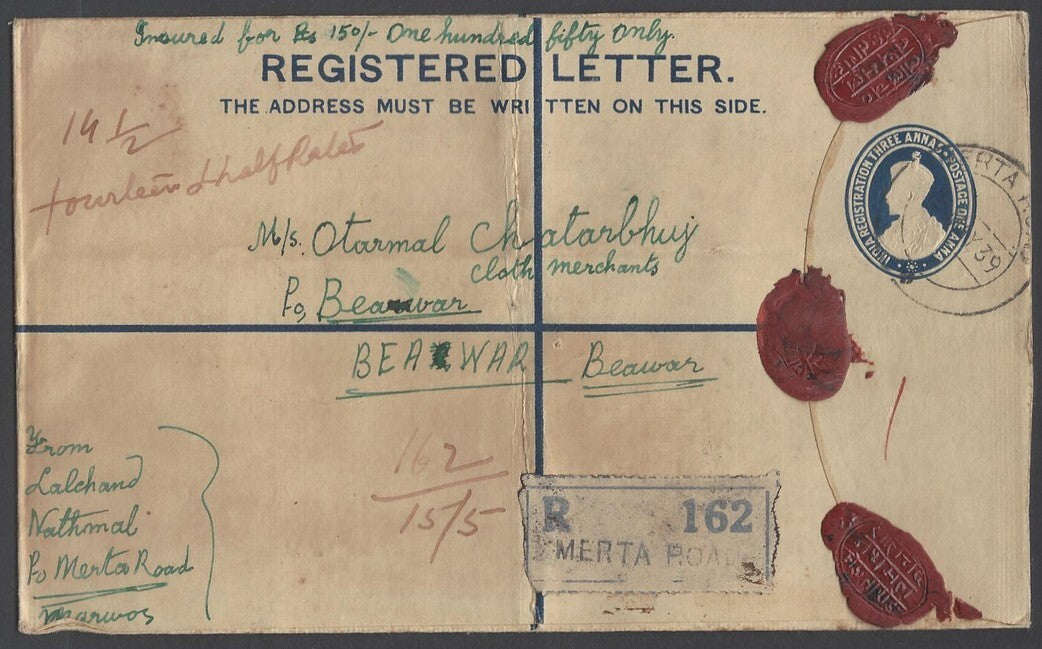 Insured for Rs 150/- One hundred fifty only.
REGISTERED LETTER.
THE ADDRESS MUST BE WRITTEN ON THIS SIDE.
14 1/2
fourteen & half
INDIA REGISTRATION THREE ANNAS • POSTAGE ONE ANNA
MERTA
M/s. Otarmal Chatarbhuj
cloth merchants
Po, Beawar
BEAWAR Beawar
From
Lalchand
Nathmal
Po Merta Road
Marwar
162
15/5
R 162
MERTA ROAD